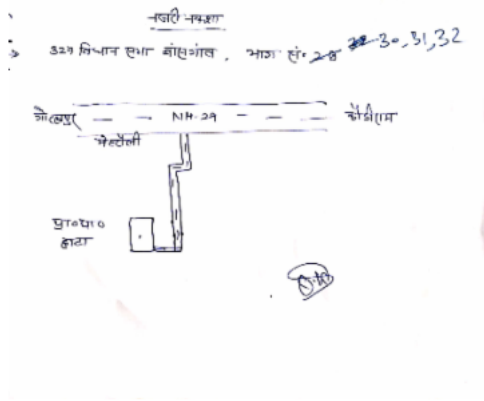 नजरी नक्शा
327 विधान सभा बांसगांव, भाग सं० 30, 31, 32
गोरखपुर NH-29 कौडीराम
प्रा०पा०
हाटा